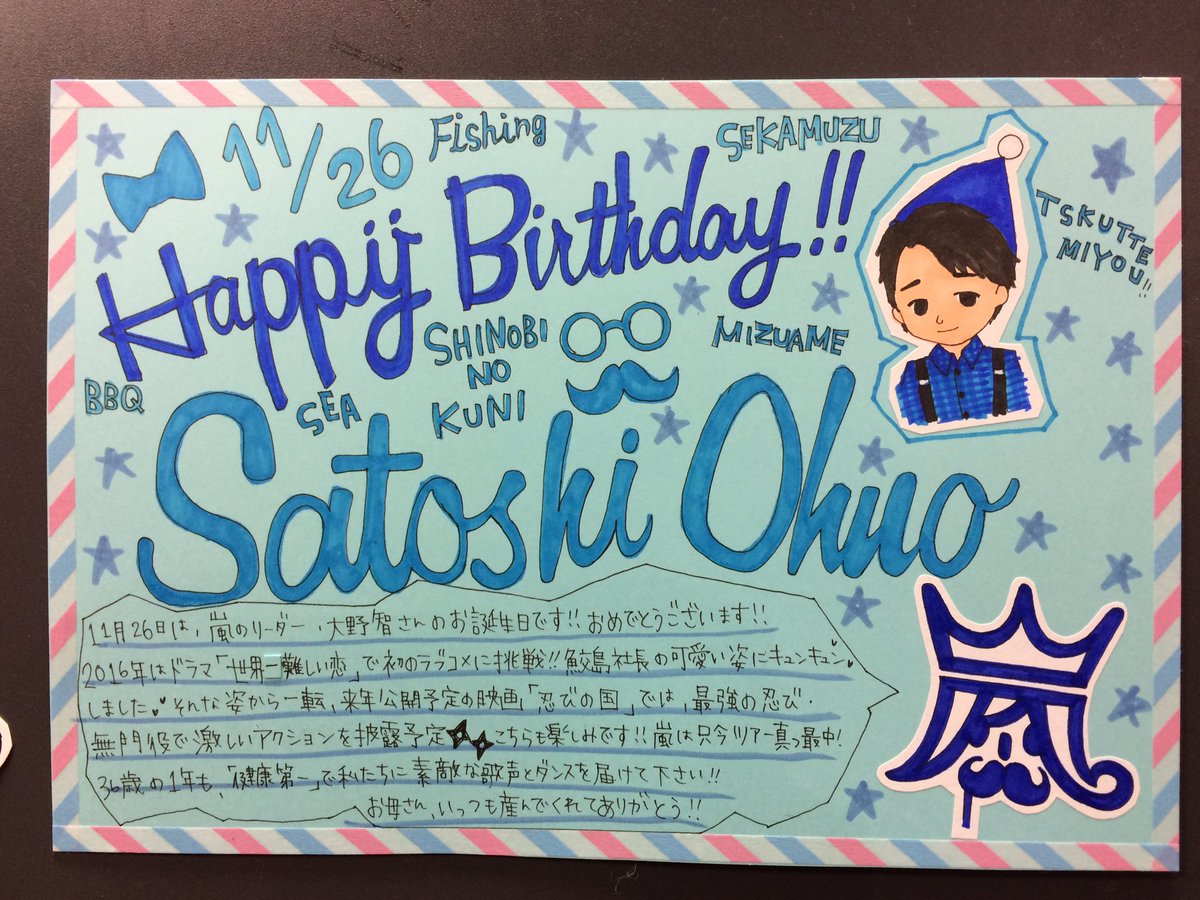 11/26
Fishing
SEKAMUZU
TSKUTTE
MIYOU!!
Happy Birthday!!
SHINOBI
NO
KUNI
MIZUAME
BBQ
SEA
Satoshi Ohno
11月26日は、嵐のリーダー、大野智さんのお誕生日です!!おめでとうございます!!
2016年はドラマ「世界一難しい恋」で初のラブコメに挑戦!!鮫島社長の可愛い姿にキュンキュン♥
しました♥それな姿から一転、来年公開予定の映画「忍びの国」では、最強の忍び・
無門役で激しいアクションを披露予定 こちらも楽しみです!!嵐は只今ツアー真っ最中!
36歳の1年も、「健康第一」で私たちに素敵な歌声とダンスを届けて下さい!!
お母さん、いっつも産んでくれてありがとう!!
嵐